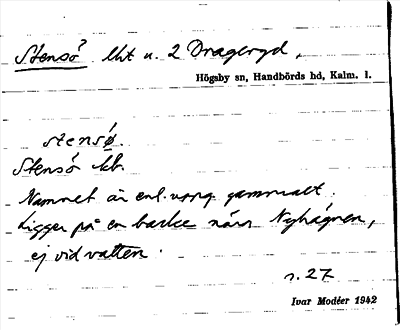 Stensö lht u. 2 Drageryd,
Högsby sn, Handbörds hd, Kalm. l.
stensø.
Stensö kb.
Namnet är enl. uppg. gammalt.
Ligger på en backe nära Nyhagnen,
ej vid vatten.
s. 27
Ivar Modéer 1942